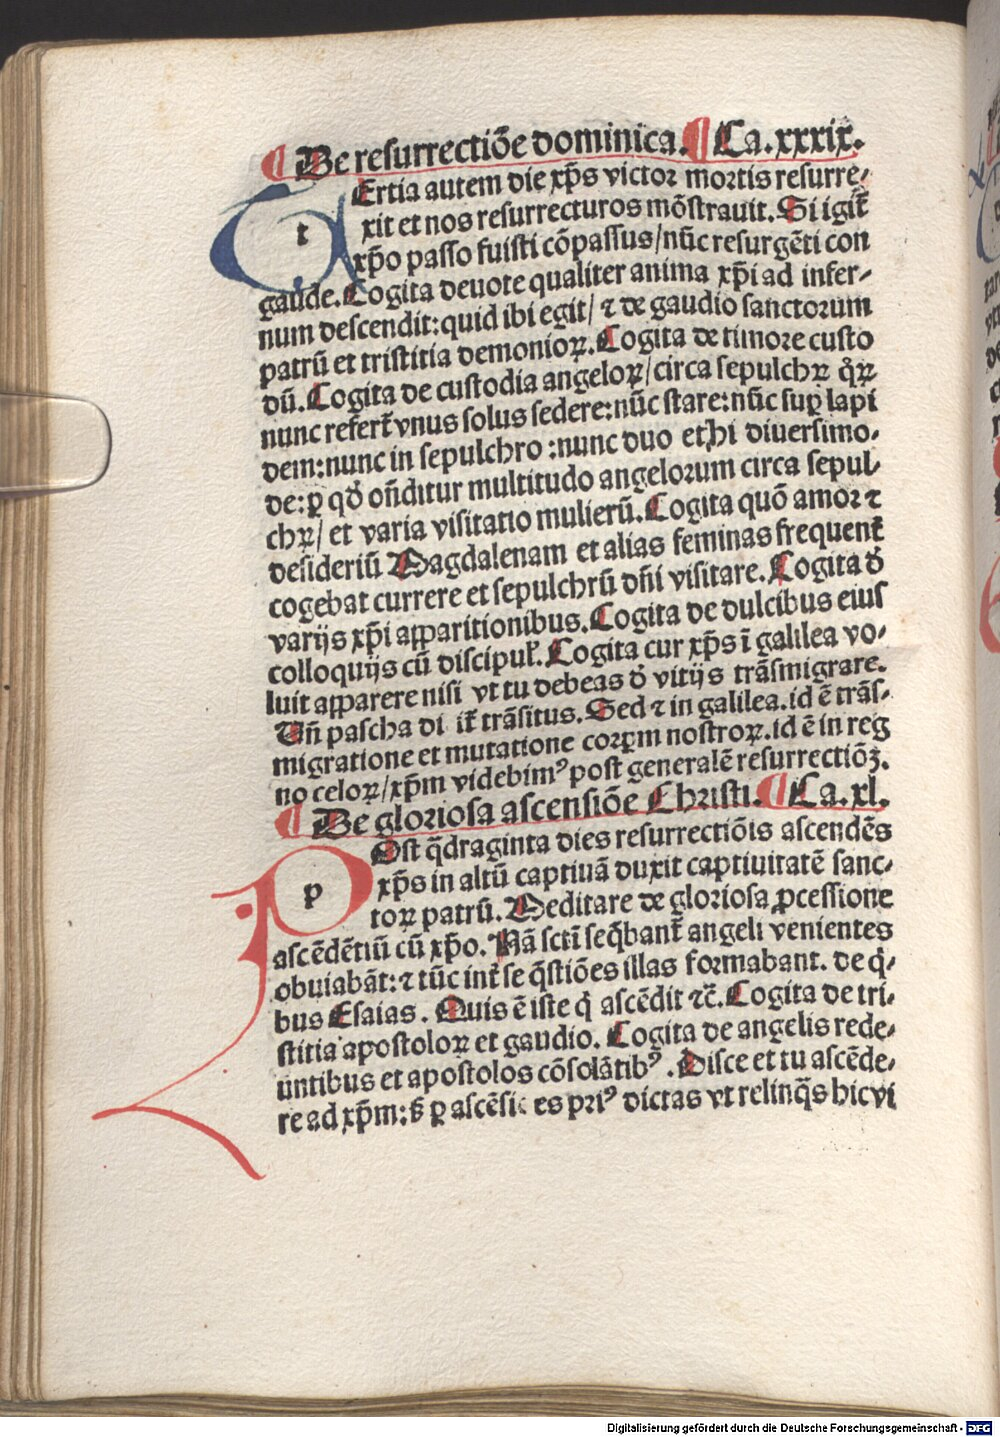 ¶ De resurrectiõe dominica. ¶ Ca. xxxix.
tErtia autem die xp̃s victor mortis resurre⸗
xit et nos resurrecturos mõstrauit. Si igit̃
xp̃o passo fuisti cõpassus/ nũc resurgẽti con
gaude. Cogita deuote qualiter anima xp̃i ad infer⸗
num descendit: quid ibi egit/ ⁊ de gaudio sanctorum
patrũ et tristitia demonioꝝ. Cogita de timore custo
dũ. Cogita de custodia angeloꝝ/ circa sepulchꝝ q̊ꝝ
nunc refert̃ vnus solus sedere: nũc stare: nũc suꝑ lapi
dem: nunc in sepulchro : nunc duo et hi diuersimo⸗
de: ꝑ qď oñditur multitudo angelorum circa sepul⸗
chꝝ/ et varia visitatio mulierũ. Cogita quõ amor ⁊
desideriũ Magdalenam et alias feminas frequent̃
cogebat currere et sepulchrũ dñi visitare. Cogita ď
varijs xp̃i apparitionibus. Cogita de dulcibus eius
colloquijs cũ discipuł. Cogita cur xp̃s ĩ galilea vo⸗
luit apparere nisi vt tu debeas ď vitijs trãsmigrare.
Uñ pascha di it̃ trãsitus. Sed ⁊ in galilea. id ẽ trãs⸗
migratione et mutatione corꝑm nostroꝝ. id ẽ in reg
no celoꝝ/ xp̃m videbimꝰ post generalẽ resurrectiõꝫ.
¶ De gloriosa ascensiõe Christi. ¶ Ca. xl.
pOst q̃draginta dies resurrectiõis ascendẽs
xp̃s in altũ captiuã duxit captiuitatẽ sanc⸗
toꝝ patrũ. Meditare de gloriosa ꝓcessione
ascẽdẽtiũ cũ xp̃o. Nã sctĩ seq̃bant̃ angeli venientes
obuiabãt: ⁊ tũc int̃ se q̃stiões illas formabant. de q̇⸗
bus Esaias. Quis ẽ iste q̇ ascẽdit ⁊c̃. Cogita de tri⸗
stitia apostoloꝝ et gaudio. Cogita de angelis rede⸗
untibus et apostolos cõsolãtibꝰ. Disce et tu ascẽde⸗
re ad xp̃m: ß ꝑ ascẽsi es priꝰ dictas vt relinq̃s hic vi
Digitalisierung gefördert durch die Deutsche Forschungsgemeinschaft - DFG